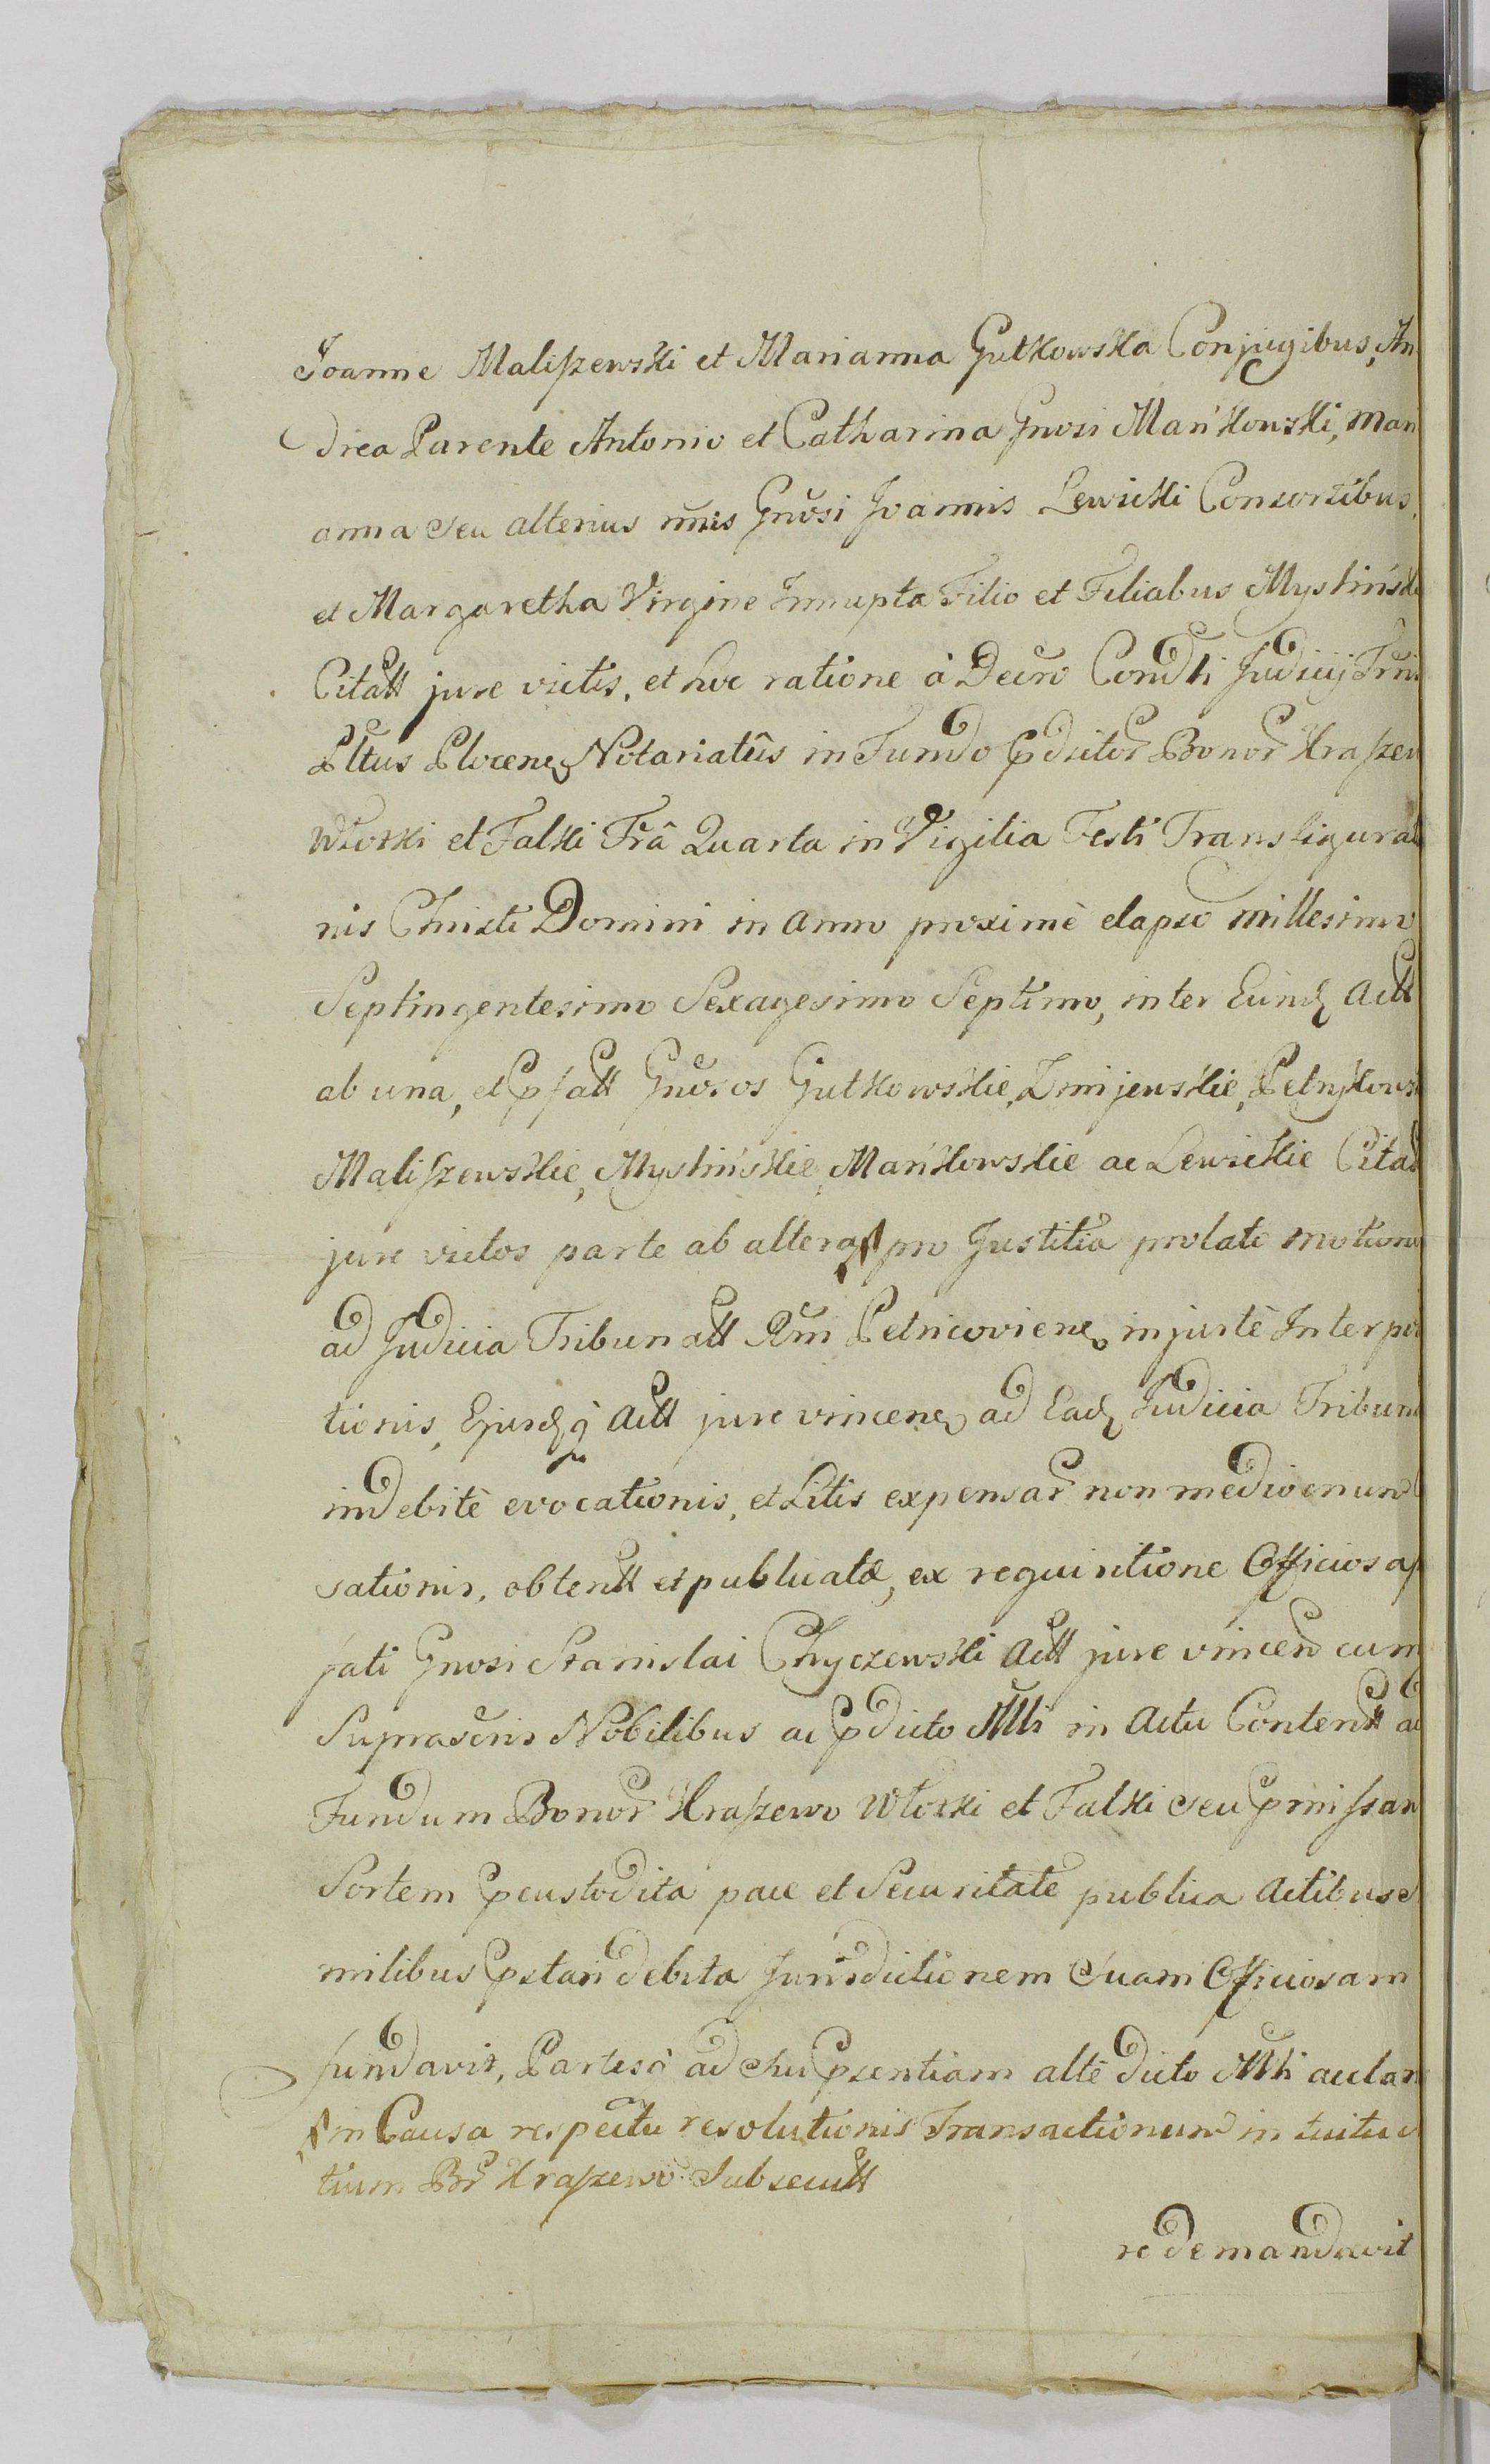 Joanne Maliszewski et Marianna Gutkowska Conjugibus, An
drea Parente Antonio et Catharina Gnosi Mańkowski, Mari
anna seu alterius nnis Gnosi Joannis Lewicki Consortibus,
et Margaretha Virgine Innupta Filio et Filiabus Myslińskie
Citatt jure victis, et hoc ratione à Decro Condti Judicij Trris
Pltus Plocenq Notariatûs in Fundo pdictor Bonor Kraszewo
Włotki et Falki Frâ Quarta in Vigilia Festi Transfigurat
nis Christi Domini in anno proximè elapso millesimo
Septingentesimo Sexagesimo Septimo, inter Eund Actt
ab una, et pfatt Gnosos Gutkowskie, Zmijewskie, Petrykows
Maliszewskie, Myslińskie, Mańkowskie ac Lewickie Citat
jure victos parte ab altera pro Justitia prolati motion
ad Judicia Tribunatt Rni Petricovienq injustè Interpo
tionis, Ejusdq Actt jure vincenq ad Ead Judicia Tribuna
indebitè evocationis, et Litis expensar non mediocrium
sationis, obtentt et publicatæ, ex requisitione Officiosa p
fati Gnosi Stanislai Chyczewski Actt jure vincen cum
Suprascris Nobilibus ac pdicto Mtti in Actu Contentt ad
Fundum Bonor Kraszewo Włotki et Falki seu pmissam
Sortem pcustodita pace et Securitate publica Actibus si
milibus pstan debita Jurisdictionem Suam Officiosam
fundavit, Partesq ad sui psentiam altè dicto Mtti acclam
in Causa respectu resolutionis Transactionum intuitu
tium Br Kraszewo Subsecutt
re demandavit